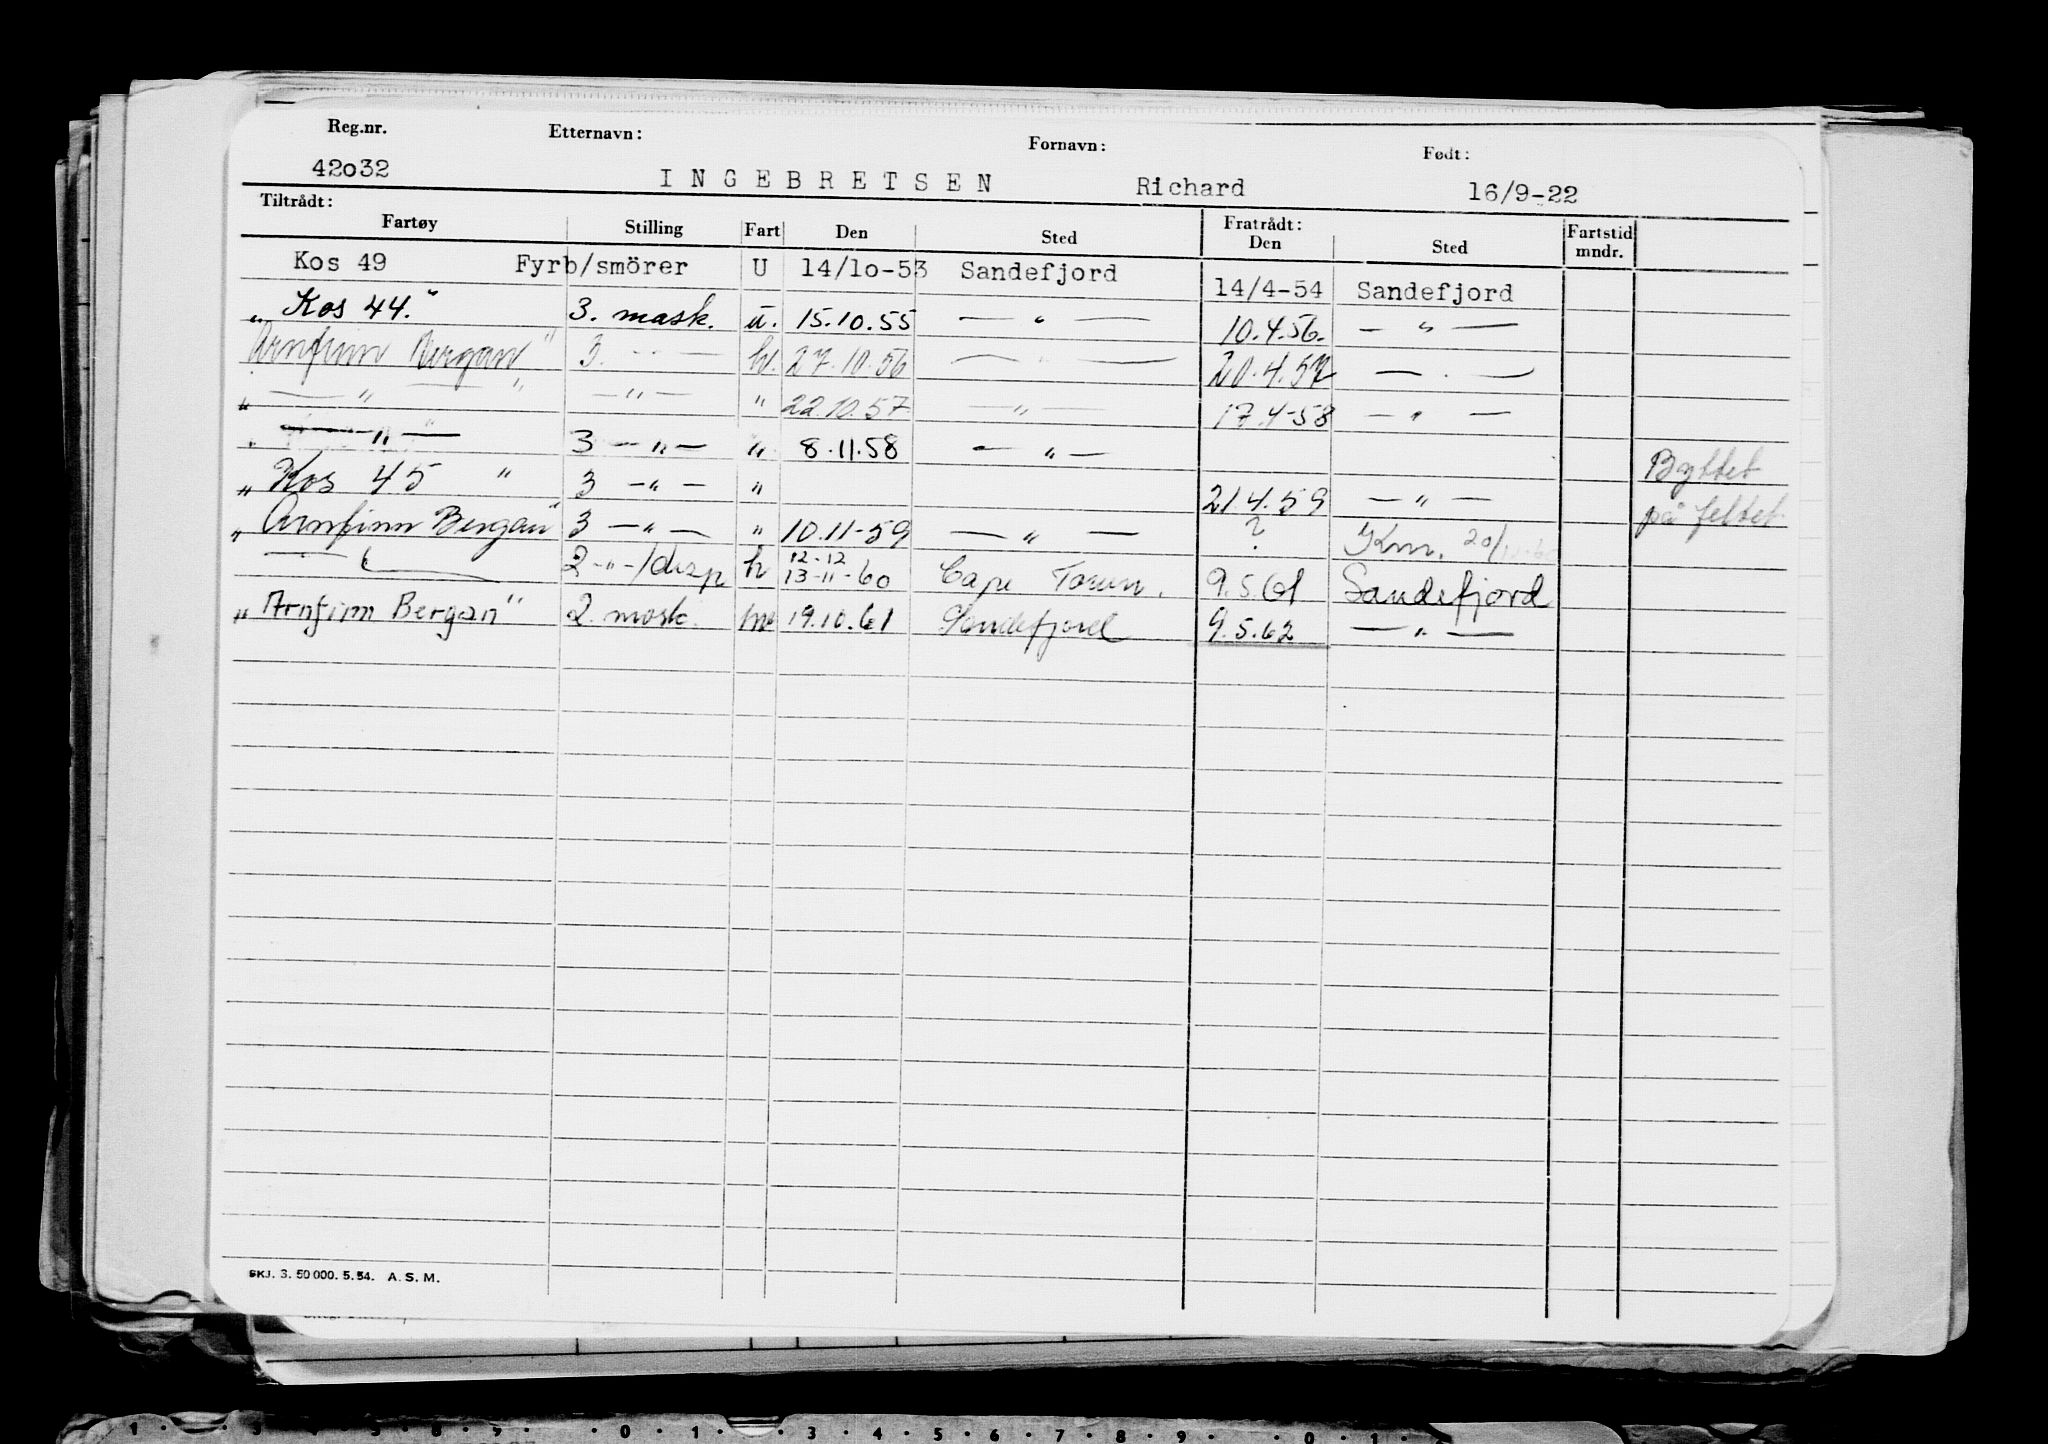 Reg.nr. Etternavn: Fornavn: Født:
42o32 INGEBRETSEN Richard 16/9-22
Tiltrådt: Fratrådt:
Fartøy Stilling Fart Den Sted Den Sted Fartstid mndr.
Kos 49 Fyrb/smörer U 14/1o-53 Sandefjord 14/4-54 Sandefjord
„ Kos 44." 3. mask. u. 15.10.55 — " — 10.4.56. — " —
Arnfinn Bergan" 3. — " — hv. 27.10.56 — " — 20.4.57 — " —
„ — " — " — " — " 22.10.57 — " — 17.4-58 — " —
„ — " — " 3 — " — " 8.11.58 — " — Byttet
„ Kos 45 " 3 — " — " 21.4.59 — " — på feltet
„ Arnfinn Bergan" 3 — " — " 10.11-59 — " — ? 20/
— " — 2 — " — /disp h 12-12 13-11-60 Cape Town. 9.5.61 Sandefjord
„ Arnfinn Bergan" 2. mask. 19.10.61 Sandefjord 9.5.62 — " —
SKJ. 3. 50 000. 5. 54. A. S. M.